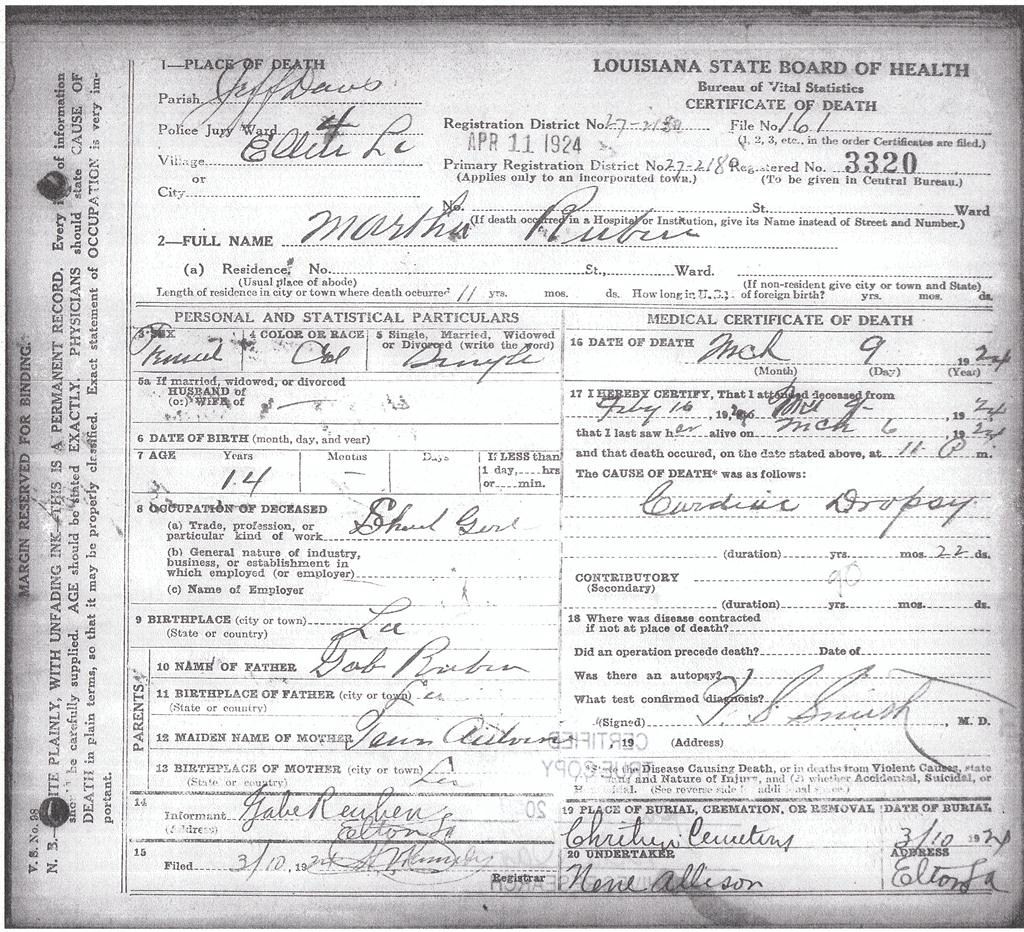 1—PLACE OF DEATH
Parish Jeff Davis
Police Jury Ward 4
Village
or
City
LOUISIANA STATE BOARD OF HEALTH
Bureau of Vital Statistics
CERTIFICATE OF DEATH
Registration District No. 27-2180 File No. 161
APR 11 1924
(1, 2, 3, etc., in the order Certificates are filed.)
Primary Registration District No. 27-218 Registered No. 3320
(Applies only to an incorporated town.) (To be given in Central Bureau.)
No. St. Ward
(If death occurred in a Hospital or Institution, give its Name instead of Street and Number.)
2—FULL NAME Martha Rubin
(a) Residence, No. St., Ward.
(Usual place of abode) (If non-resident give city or town and State)
Length of residence in city or town where death occurred 11 yrs. mos. ds. How long in U.S., of foreign birth? yrs. mos. ds.
PERSONAL AND STATISTICAL PARTICULARS
3 SEX 4 COLOR OR RACE 5 Single, Married, Widowed
or Divorced (write the word)
Col Single
5a If married, widowed, or divorced
HUSBAND of
(or) WIFE of —
6 DATE OF BIRTH (month, day, and year)
7 AGE Years Months Days If LESS than
1 day, hrs
or min.
14 —
8 OCCUPATION OF DECEASED
(a) Trade, profession, or
particular kind of work
(b) General nature of industry,
business, or establishment in
which employed (or employer)
(c) Name of Employer
9 BIRTHPLACE (city or town)
(State or country) La
PARENTS
10 NAME OF FATHER Gab Rubin
11 BIRTHPLACE OF FATHER (city or town) La
(State or country)
12 MAIDEN NAME OF MOTHER
13 BIRTHPLACE OF MOTHER (city or town) La
(State or country)
14
Informant Gabe Reuben
(Address) Elton La
15
Filed 3/10, 1924
Registrar
MEDICAL CERTIFICATE OF DEATH
16 DATE OF DEATH Mch 9 1924
(Month) (Day) (Year)
17 I HEREBY CERTIFY, That I attended deceased from
Feby 16, 1924 to Mch 9 1924
that I last saw her alive on Mch 6 1924
and that death occured, on the date stated above, at 11 P m.
The CAUSE OF DEATH* was as follows:
Cardiac Dropsy
(duration) yrs. mos. 22 ds.
90
CONTRIBUTORY
(Secondary)
(duration) yrs. mos. ds.
18 Where was disease contracted
if not at place of death?
Did an operation precede death? Date of
Was there an autopsy?
What test confirmed diagnosis?
(Signed) Smith, M. D.
, 19 (Address)
CERTIFIED
TRUE COPY
Disease Causing Death, or in deaths from Violent Causes, state
and Nature of Injury, and (2) whether Accidental, Suicidal, or
(See reverse side additional space.)
19 PLACE OF BURIAL, CREMATION, OR REMOVAL DATE OF BURIAL
Cemetery 3/10 1924
20 UNDERTAKER ADDRESS
Nene Allison Elton La
V. S. No. 98
MARGIN RESERVED FOR BINDING
N. B.—WRITE PLAINLY, WITH UNFADING INK—THIS IS A PERMANENT RECORD. Every of information
should be carefully supplied. AGE should be stated EXACTLY. PHYSICIANS should state CAUSE OF
DEATH in plain terms, so that it may be properly classified. Exact statement of OCCUPATION is very im-
portant.